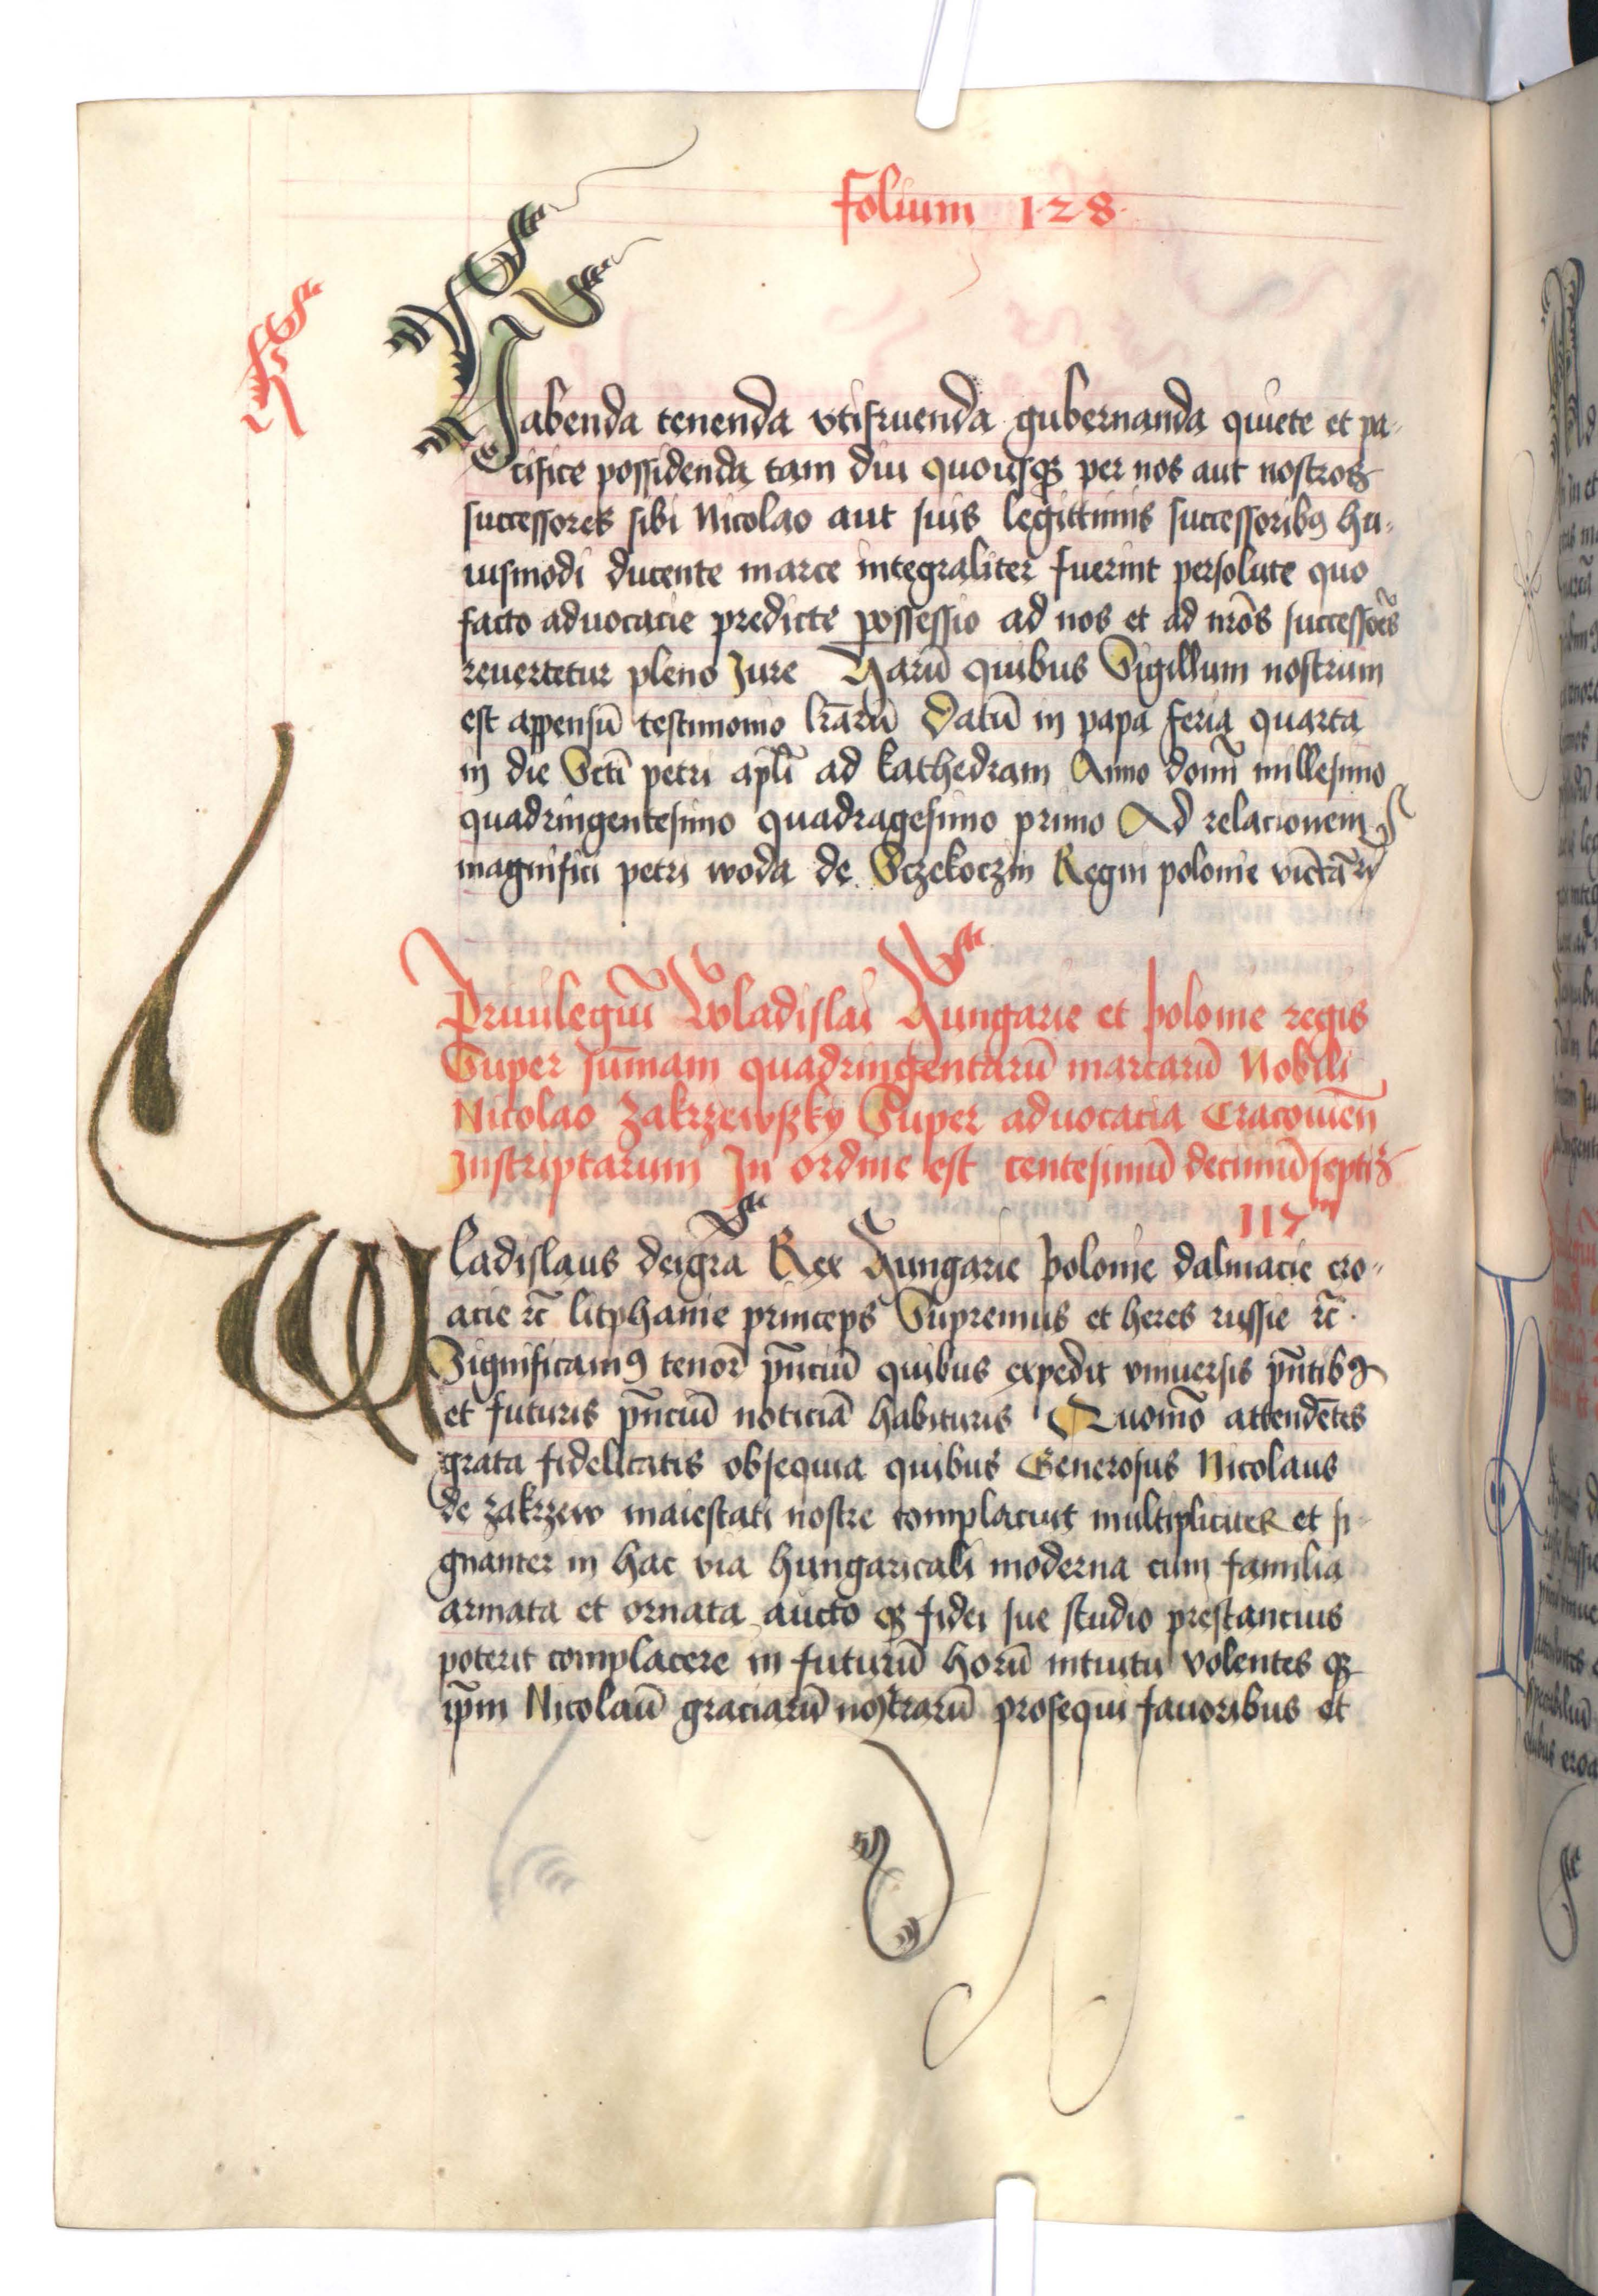 Folium 128
Habenda tenenda vtifruenda gubernanda quiete et pa-
cifice possidenda tam diu quousqꝫ per nos aut nostros
successores sibi Nicolao aut suis legittimis successoribꝯ hu-
iusmodi ducente marce integraliter fuerint persolute quo
facto aduocacie predicte possessio ad nos et ad nr̄os successor̄es
reuertetur pleno Jure Harū quibus Sigillum nostrum
est appensū testimonio lr̄arū Datū in papa feria quarta
in die Scti petri apl̄i ad kathedram Anno domī millesimo
quadringentesimo quadragesimo primo Ad relacionem
magnifici petri woda de Sczekoczin Regni polonie vicecā̄rij
Priuilegiū Wladislai Hungarie et polonie regis
Super sūmam quadringentarū marcarū Nobili
Nicolao Zakrzewszky Super aduocacia Cracouien̄
Inscriptarum In ordine est centesimū decimū septiꝫ
117m
Wladislaus deigr̄a Rex Hungarie polonie dalmacie cro-
acie ꝛc̄ litphanie princeps Supremus et heres russie ꝛc̄.
Significamꝯ tenor̄e pn̄ciū quibus expedit vniuersis pn̄tibꝯ
et futuris pn̄ciū noticiā habituris Quomō attendētes
grata fidelitatis obsequia quibus Generosus Nicolaus
de Zakrzew maiestati nostre complacuit multipliciter et si-
gnanter in hac via hungaricali moderna cum familia
armata et ornata aucto qꝫ fidei sue studio prestancius
poterit complacere in futurū horū intuitu volentes qꝫ
ip̄m Nicolaū graciarū nostrarū prosequi fauoribus et